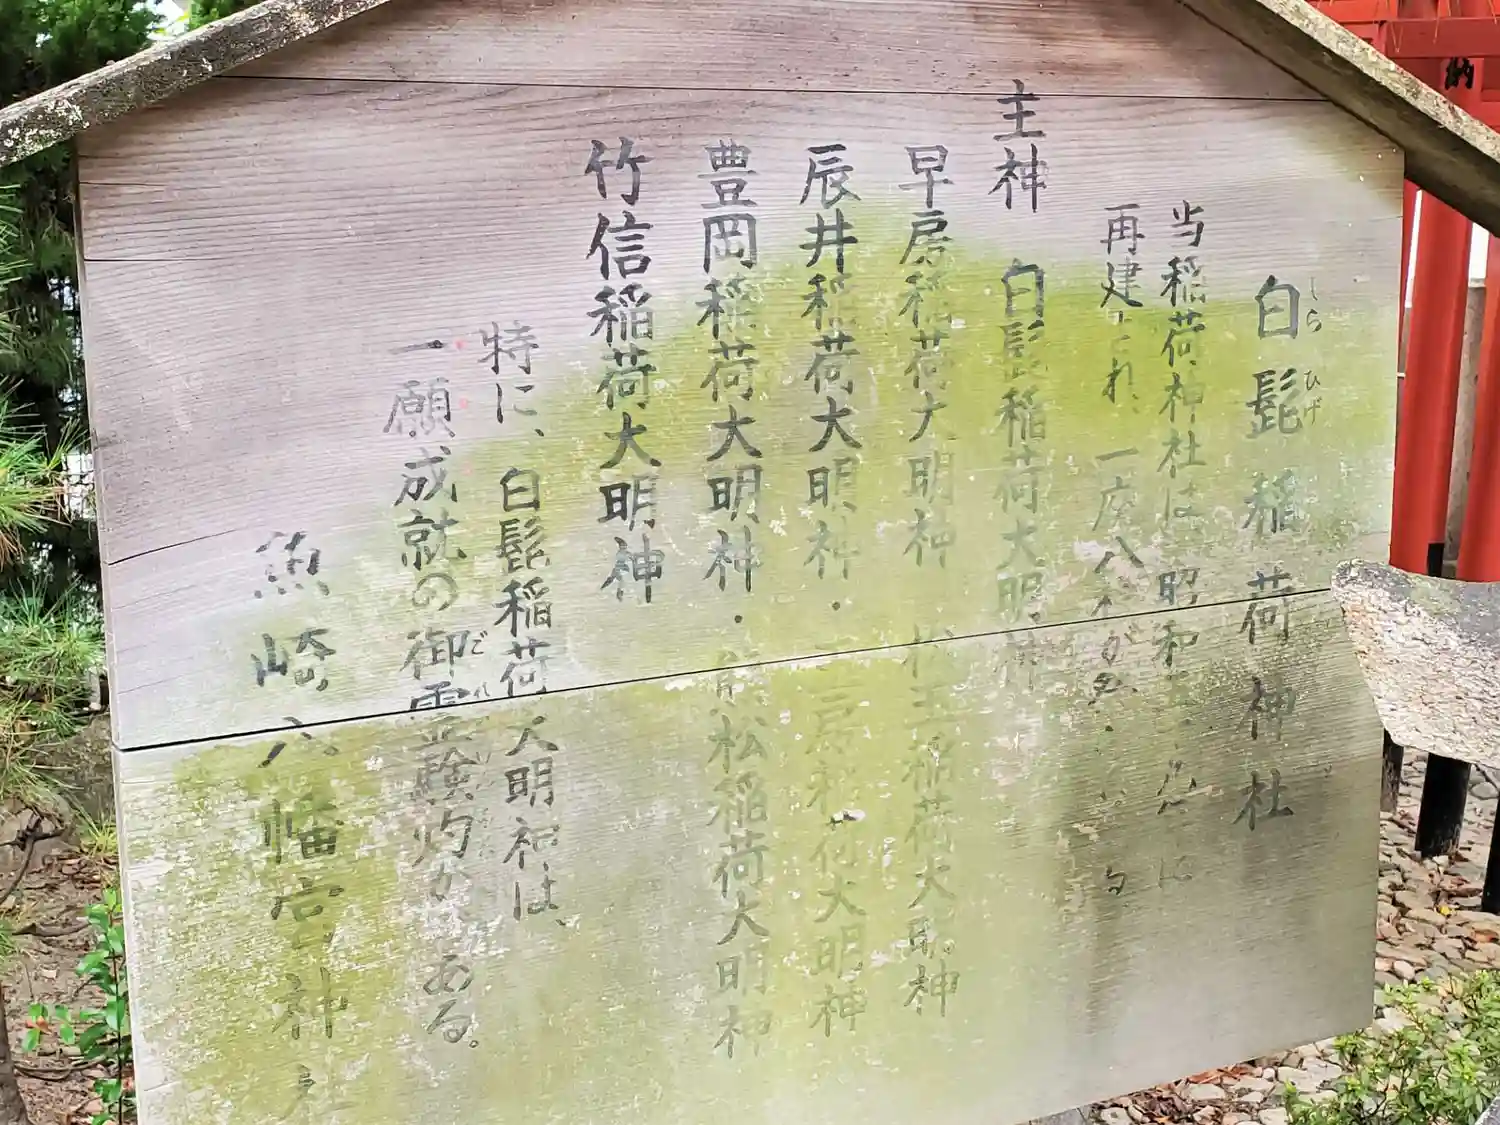 白髭稲荷神社
しら ひげ
当稲荷神社は 昭和
再建され、一座八
主神 白髭稲荷大明神
早房稲荷大明神 稲荷大明神
辰井稲荷大明神・ 房稲荷大明神
豊岡稲荷大明神・ 松稲荷大明神
竹信稲荷大明神
特に、白髭稲荷大明神は、
一願成就の御霊験灼かである。
魚崎八幡宮神社